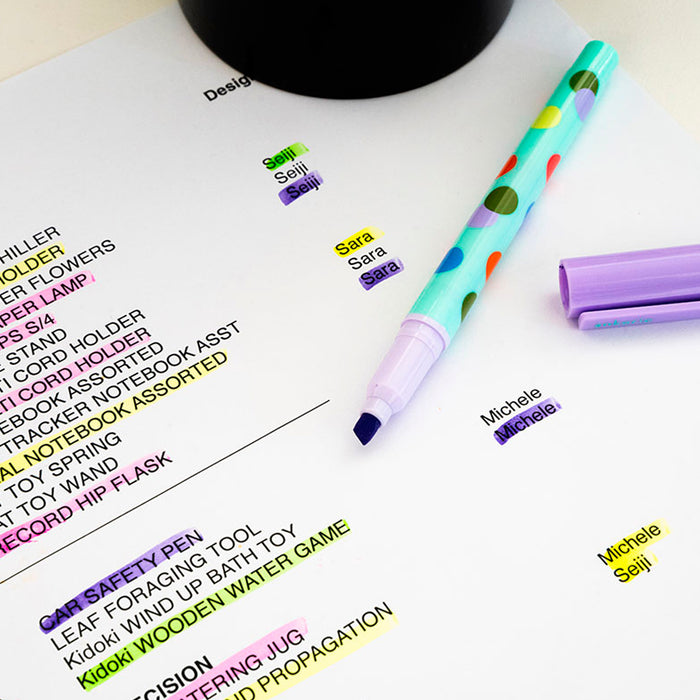 Desig
Seiji
Seiji
Seiji
Sara
Sara
Sara
Michele
Michele
Michele
Seiji
HILLER
OLDER
ER FLOWERS
PER LAMP
PS S/4
E STAND
TI CORD HOLDER
TI CORD HOLDER
EBOOK ASSORTED
TRACKER NOTEBOOK ASST
AL NOTEBOOK ASSORTED
TOY SPRING
AT TOY WAND
RECORD HIP FLASK
CAR SAFETY PEN
LEAF FORAGING TOOL
Kidoki WIND UP BATH TOY
Kidoki WOODEN WATER GAME
ECISION
TERING JUG
ND PROPAGATION